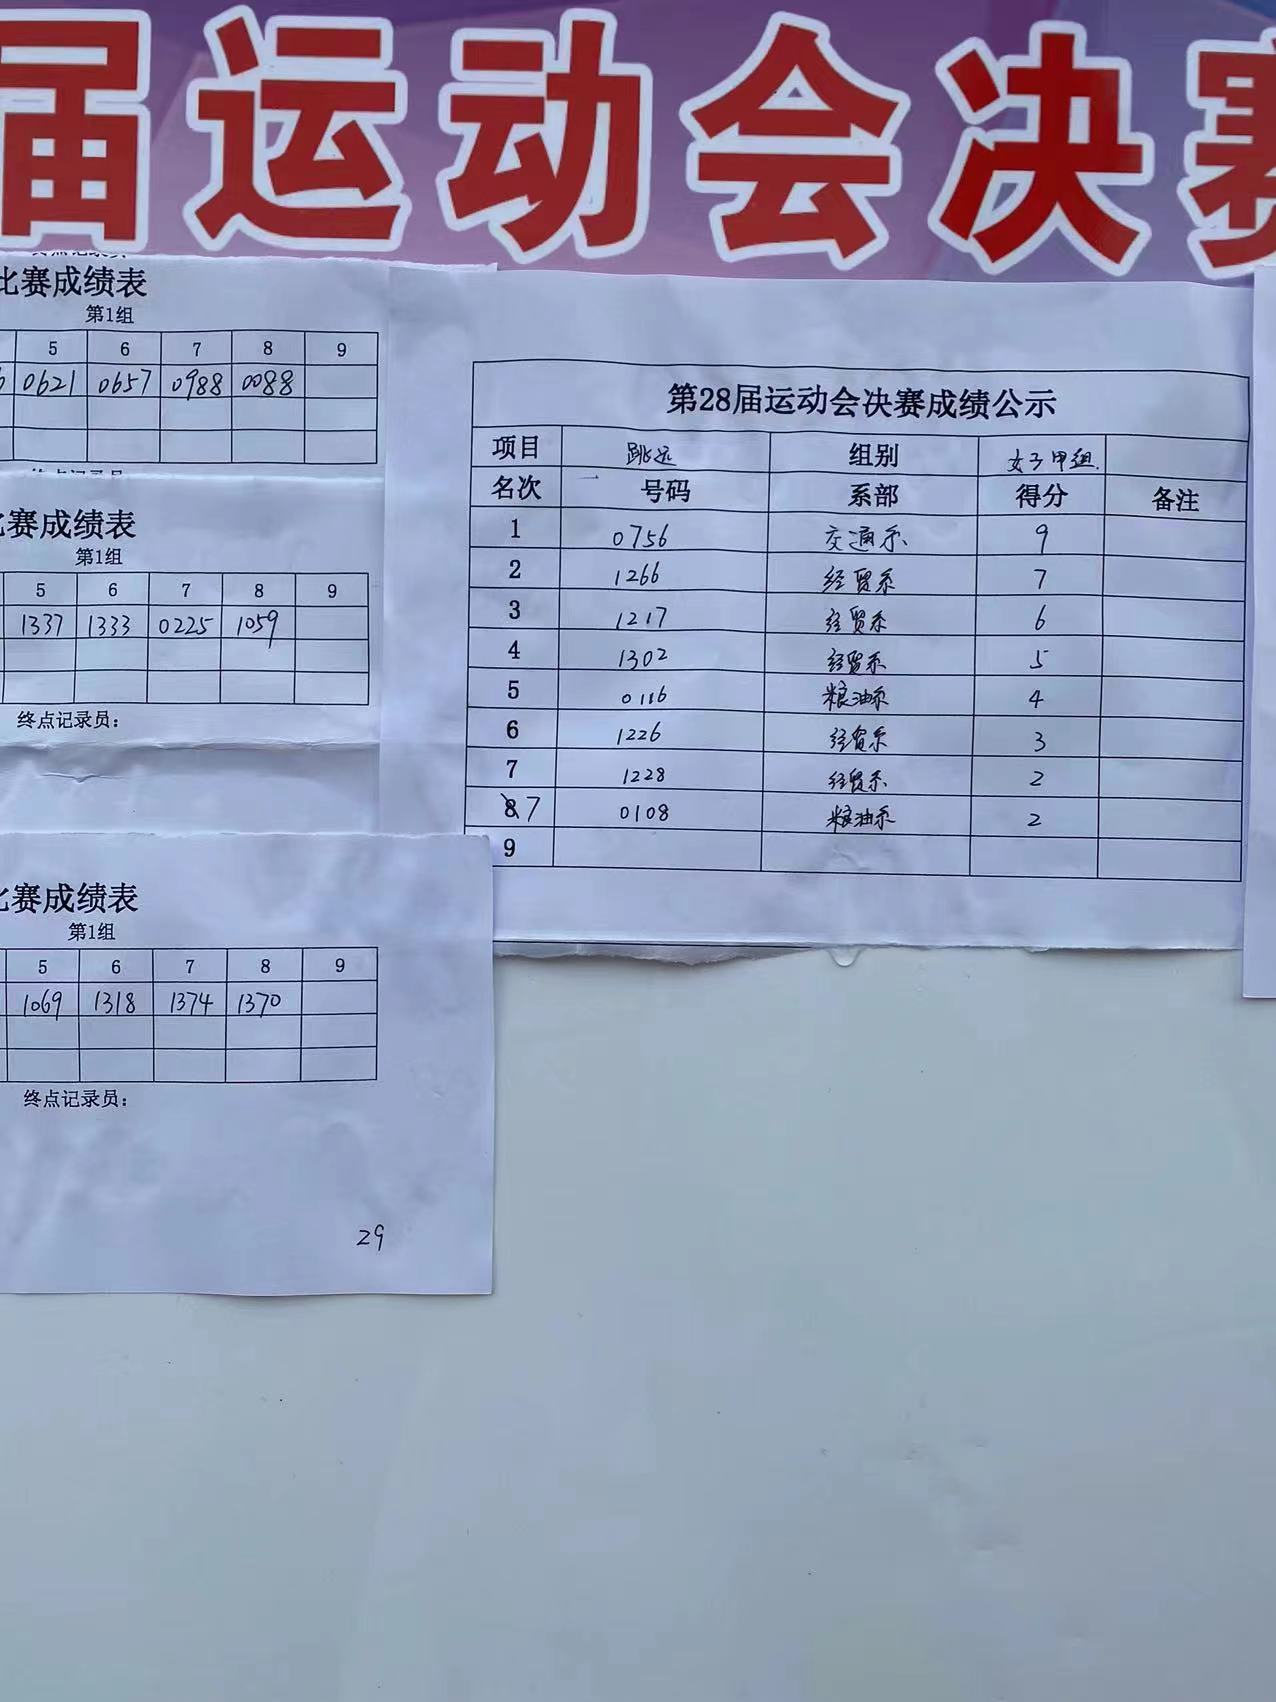 届运动会决赛
比赛成绩表
第1组
5 6 7 8 9
0621 0657 0988 0088
比赛成绩表
第1组
5 6 7 8 9
1337 1333 0225 1059
终点记录员：
比赛成绩表
第1组
5 6 7 8 9
1069 1318 1374 1370
终点记录员：
29
第28届运动会决赛成绩公示
项目 跳远 组别 女子甲组.
名次 号码 系部 得分 备注
1 0756 交通系 9
2 1266 经贸系 7
3 1217 经贸系 6
4 1302 经贸系 5
5 0116 粮油系 4
6 1226 经贸系 3
7 1228 经贸系 2
8 7 0108 粮油系 2
9